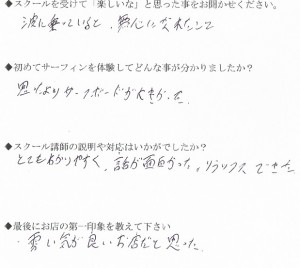 ◆スクールを受けて「楽しいな」と思った事をお聞かせください。
波に乗っていると、無心になれたこと
◆初めてサーフィンを体験してどんな事が分かりましたか？
思ったよりサーフボードが大きかった
◆スクール講師の説明や対応はいかがでしたか？
とてもわかりやすく、話が面白かった、リラックスできた
◆最後にお店の第一印象を教えて下さい
雰囲気が良いお店だと思った